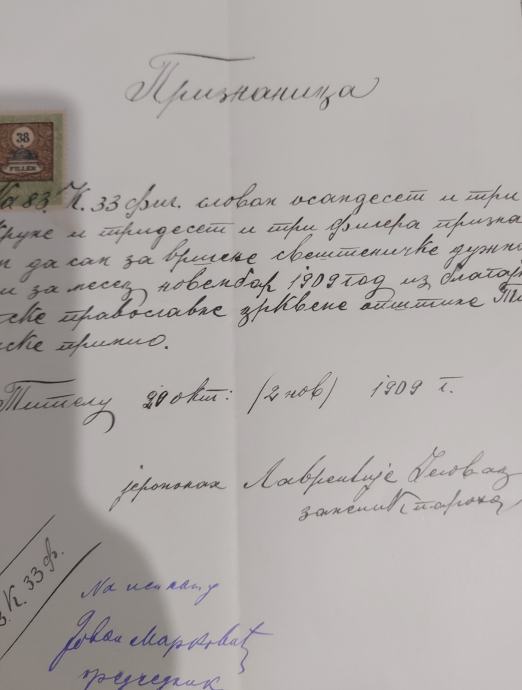 Признаница
38
FILLÉR
На 83 К. 33 фил. словом осамдесет и три
Круне и тридесет и три филера призна
да сам за вршене свештеничке дужно
и за месец новембар 1909 год из благај
ске православне црквене општине Ти
ске примио.
Тителу 29 окт: (2 нов) 1909 г.
јеромонах Лаврентије
К. 33 ф.
На исплату
Јован Марковић
председник